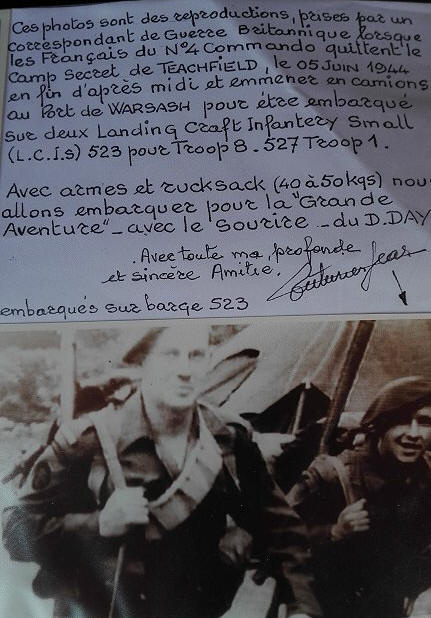 Ces photos sont des reproductions, prises par un
correspondant de Guerre Britannique lorsque
les Français du N°4 Commando quittent le
Camp Secret de TEACHFIELD, le 05 JUIN 1944
en fin d'après midi et emmener en camions
au Port de WARSASH pour être embarqué
sur deux Landing Craft Infantery Small
(L.C.I.s) 523 pour Troop 8 - 527 Troop 1.
Avec armes et rucksack (40 à 50 kgs) nou
allons embarquer pour la "Grande
Aventure" - avec le Sourire - du D.DAY
. Avec toute ma profonde
et sincère Amitie.
Jean
embarqués sur barge 523